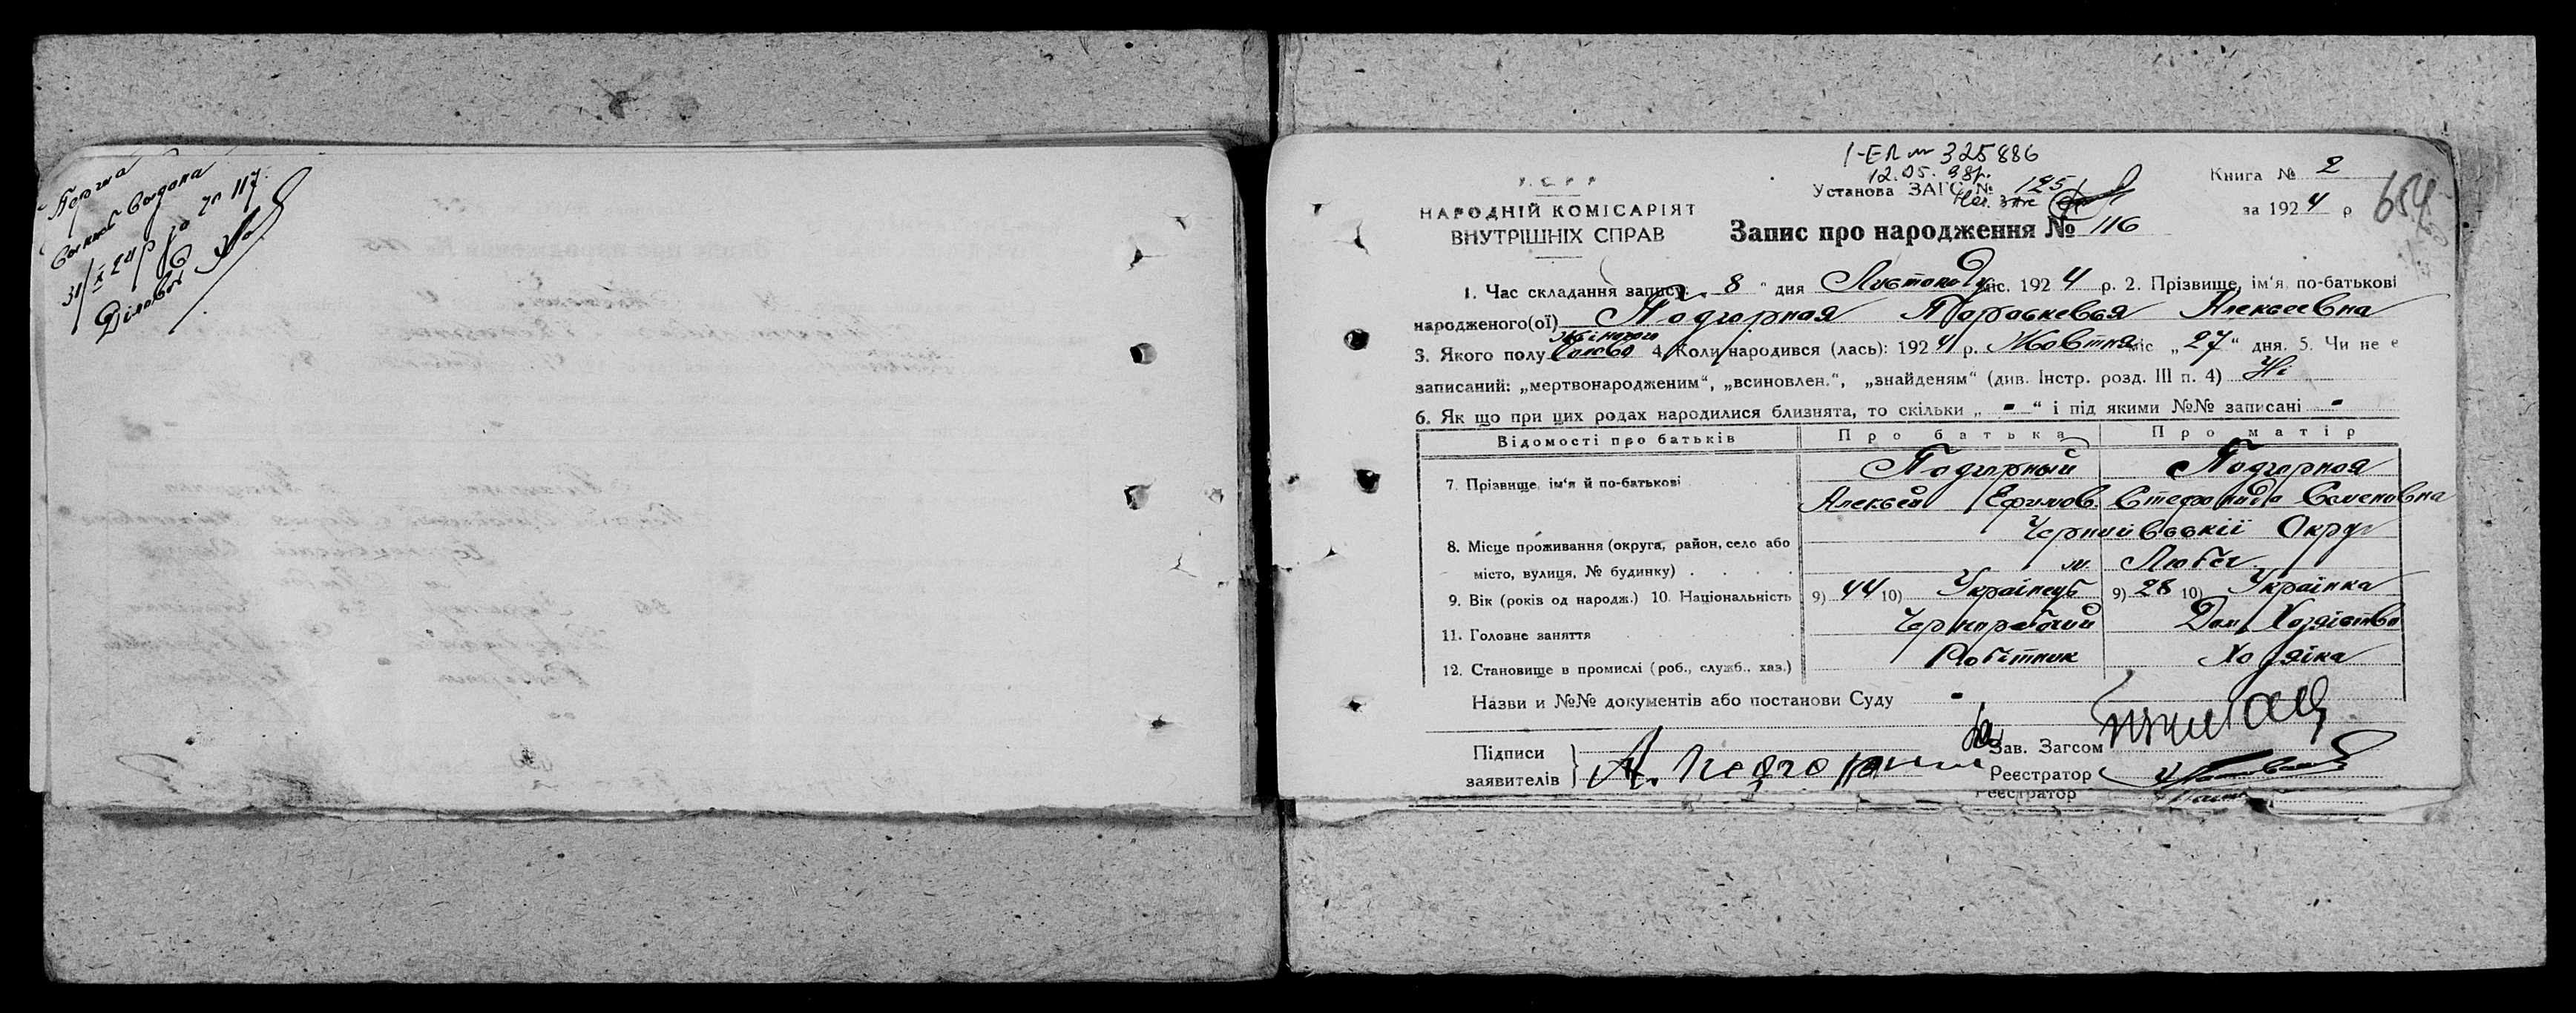 31/X 24 р за № 117.
1-ЕЛ № 325886
12.05.98р.
У.С.Р.Р
НАРОДНІЙ КОМІСАРІЯТ
ВНУТРІШНІХ СПРАВ
Установа ЗАГС № 125
Книга № 2
за 1924 р
654
Запис про народження № 116
1. Час складання запису: „8“ дня Листопаду міс. 1924 р. 2. Прізвище, ім'я, по-батькові
народженого(ої) Подгорная Пороскевья Алексеевна
жіночого
3. Якого полу 4. Коли народився (лась): 1924 р. Жовтня міс „27“ дня. 5. Чи не є
записаний: „мертвонародженим“, „всиновлен.“, „знайденям“ (див. Інстр. розд. III п. 4) Ні
6. Як що при цих родах народилися близнята, то скільки „ - “ і під якими №№ записані -
Відомості про батьків Про батька Про матір
7. Прізвище, ім'я й по-батькові Подгорный Подгорная
Алексей Ефимов. Стефанида Семеновна
8. Місце проживання (округа, район, село або Округ
місто, вулиця, № будинку) м. Любеч
9. Вік (років од народж.) 10. Національність 9) 44 10) Українець 9) 28 10) Українка
11. Головне заняття Чернорабочий Дом Хозяйство
12. Становище в промислі (роб., служб., хаз.) Робітник Хозяіка
Назви и №№ документів або постанови Суду -
Підписи
заявителів
А. Подгорний
Зав. Загсом
Реєстратор
Реєстратор